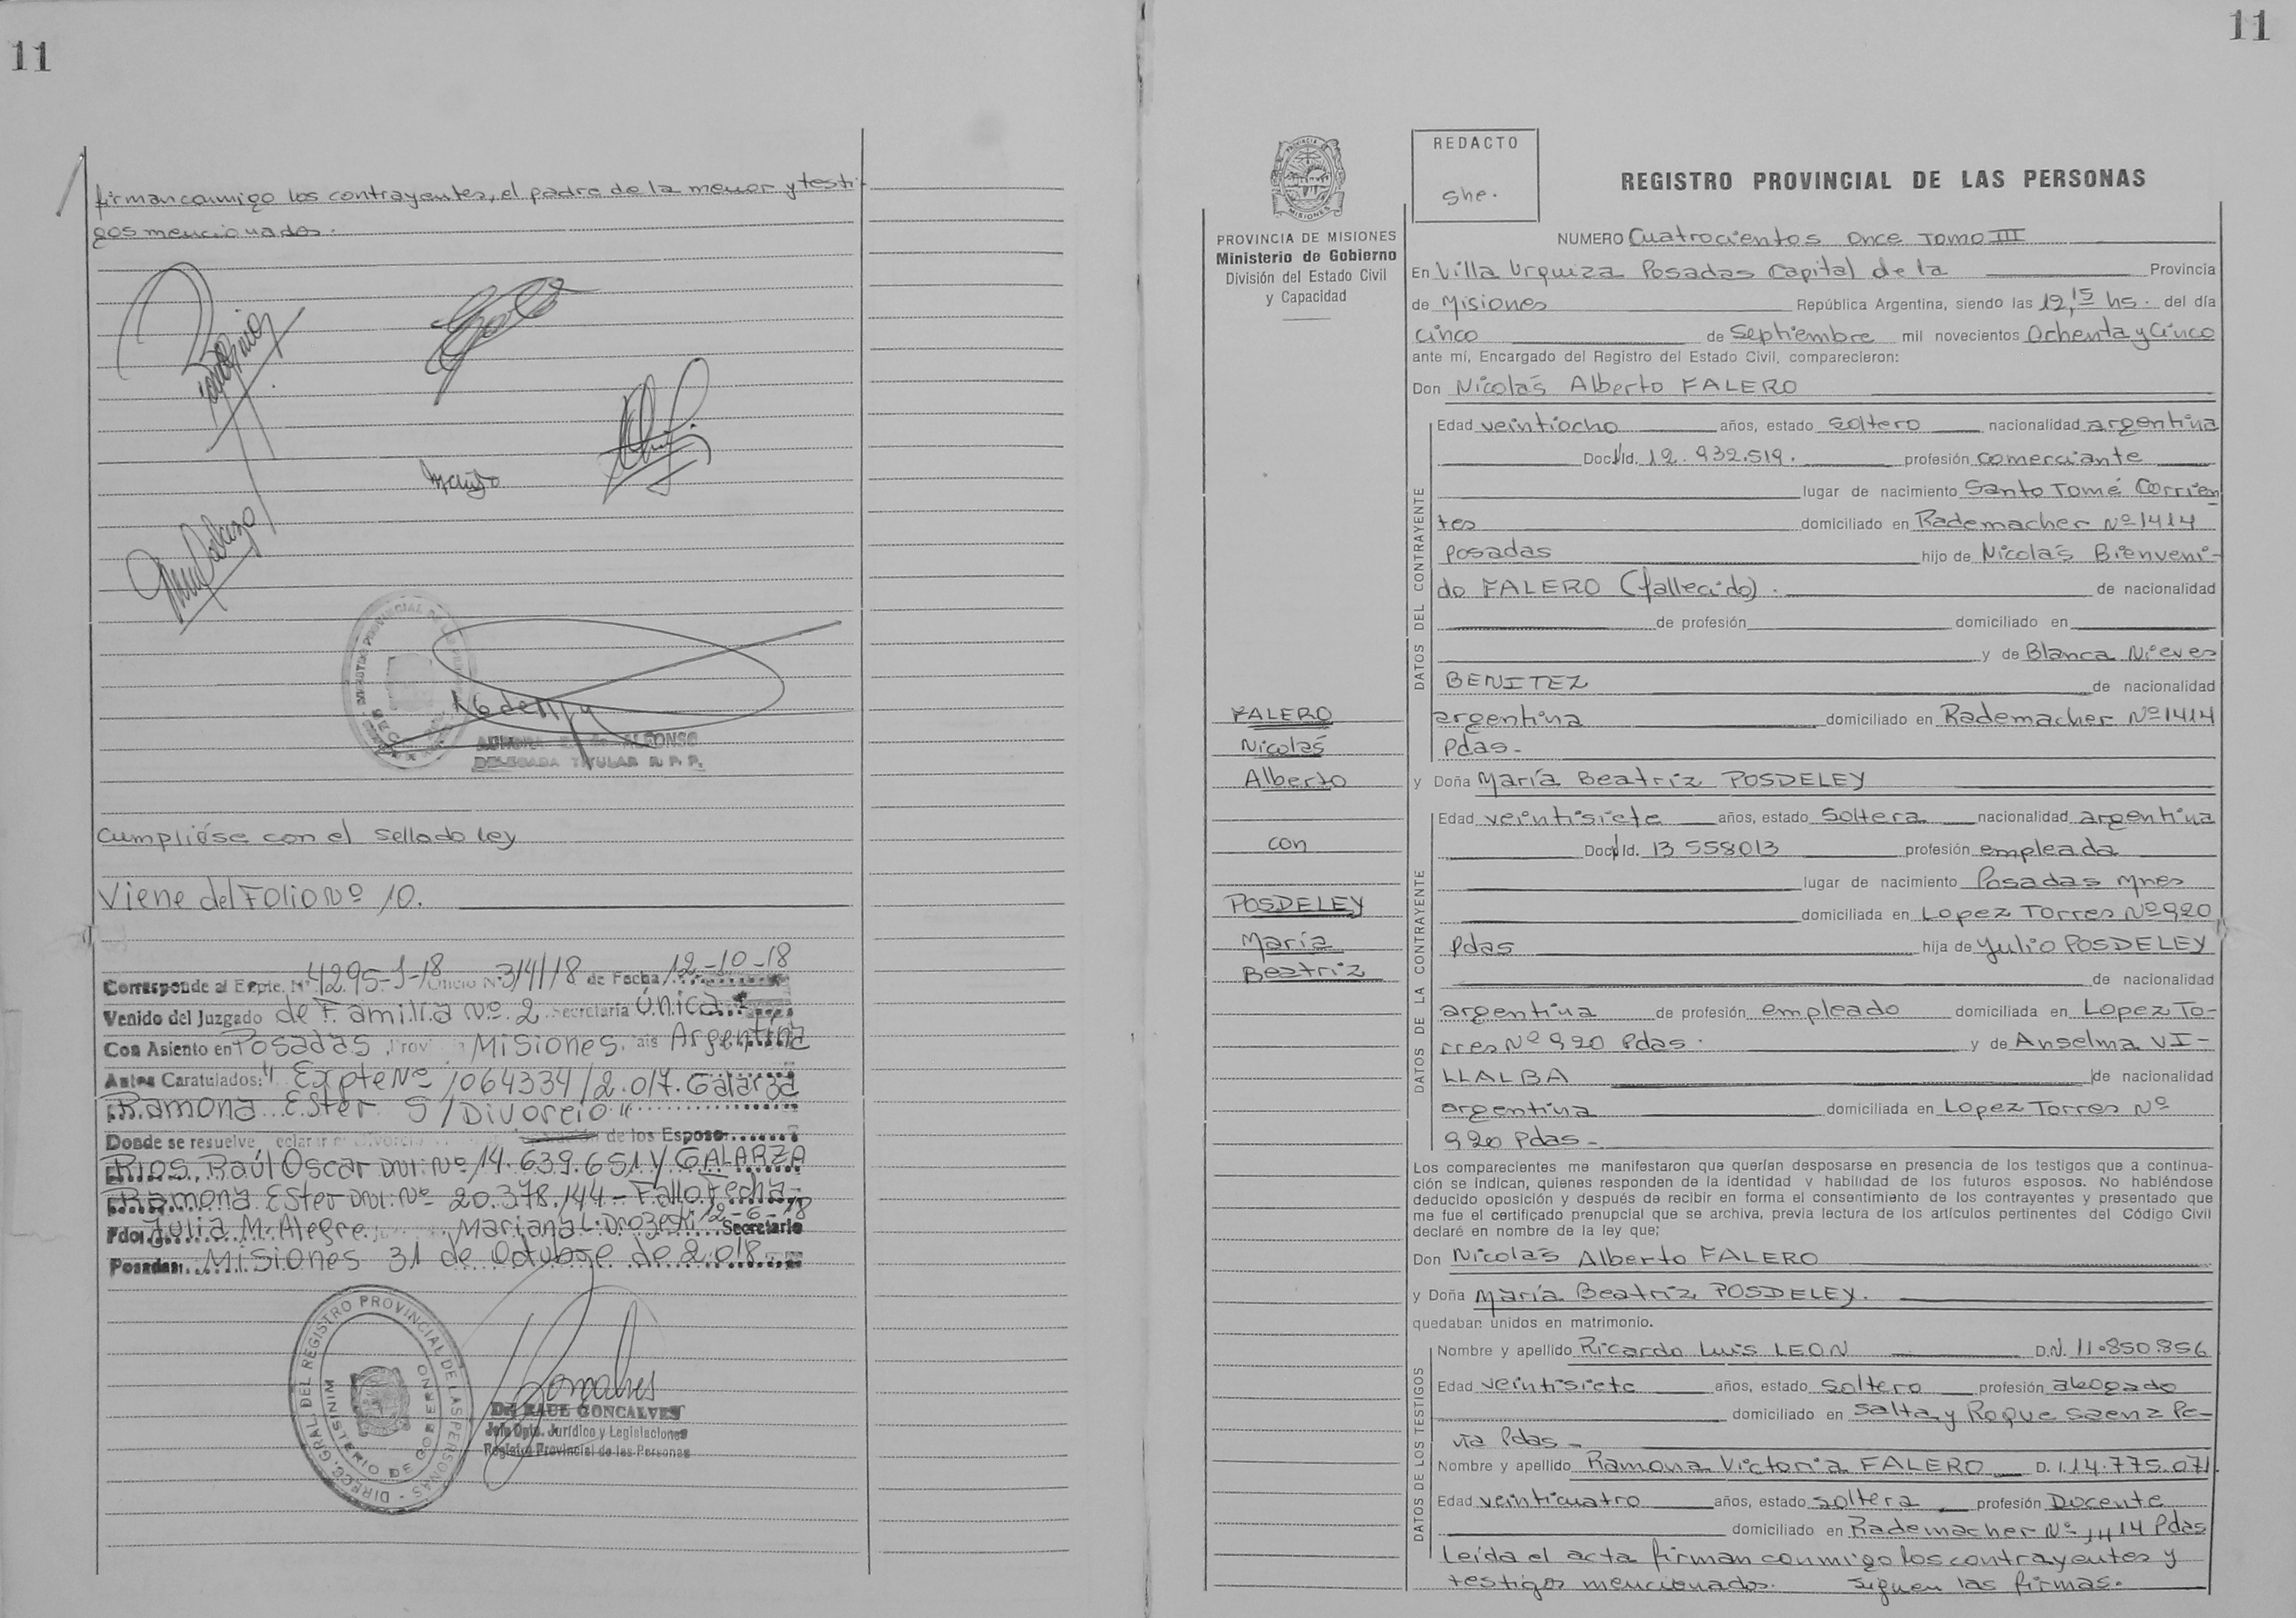 11
firman conmigo los contrayentes, el padre de la menor y testi-
gos mencionados.
AURORA ALFONSO
DELEGADA TITULAR R. P. P.
Cumpliése con el sellado ley
Viene del Folio Nº 10.
Corresponde al Expte. Nº 4295-J-18 Oficio Nº 314/18 de Fecha 12-10-18
Venido del Juzgado de Familia Nº 2 Secretaria Única
Con Asiento en Posadas Misiones Argentina
Autos Caratulados: "Expte Nº 1064334/2.017. Galarza
Ramona Ester S/Divorcio"
Donde se resuelve de los Esposo
RIOS, Raúl Oscar DNI: Nº 14.639.651 y GALARZA
Ramona Ester DNI: Nº 20.378.144 - Fallo Fecha-
12-6-18
Fdo: Julia M. Alegre Mariana L. Drozeski Secretario
Posadas: Misiones 31 de Octubre de 2.018
DIRECC. GRAL. DEL REGISTRO PROVINCIAL DE LAS PERSONAS
MINISTERIO DE GOBIERNO
Dr. RAUL GONCALVES
Jefe Dpto. Jurídico y Legislaciones
Registro Provincial de las Personas
11
PROVINCIA DE MISIONES
Ministerio de Gobierno
División del Estado Civil
y Capacidad
FALERO
Nicolás
Alberto
con
POSDELEY
María
Beatriz
REDACTO
she.
REGISTRO PROVINCIAL DE LAS PERSONAS
NUMERO Cuatrocientos Once Tomo III
En Villa Urquiza Posadas Capital de la Provincia
de Misiones República Argentina, siendo las 12,15 hs. del día
cinco de Septiembre mil novecientos Ochenta y Cinco
ante mí, Encargado del Registro del Estado Civil, comparecieron:
Don Nicolás Alberto FALERO
DATOS DEL CONTRAYENTE
Edad veintiocho años, estado soltero nacionalidad argentina
Doc. Id. 12.932.519. profesión comerciante
lugar de nacimiento Santo Tomé Corrien
tes domiciliado en Rademacher Nº 1414
Posadas hijo de Nicolás Bienveni-
do FALERO (fallecido). de nacionalidad
de profesión domiciliado en
y de Blanca Nieves
BENITEZ de nacionalidad
argentina domiciliado en Rademacher Nº 1414
Pdas-
y Doña María Beatriz POSDELEY
DATOS DE LA CONTRAYENTE
Edad veintisiete años, estado Soltera nacionalidad argentina
Doc. Id. 13 558013 profesión empleada
lugar de nacimiento Posadas Mnes
domiciliada en Lopez Torres Nº 920
Pdas hija de Yulio POSDELEY
de nacionalidad
argentina de profesión empleado domiciliada en Lopez To-
rres Nº 920 Pdas. y de Anselma VI-
LLALBA de nacionalidad
argentina domiciliada en Lopez Torres Nº
920 Pdas-
Los comparecientes me manifestaron que querían desposarse en presencia de los testigos que a continua-
ción se indican, quienes responden de la identidad y habilidad de los futuros esposos. No habiéndose
deducido oposición y después de recibir en forma el consentimiento de los contrayentes y presentado que
me fue el certificado prenupcial que se archiva, previa lectura de los artículos pertinentes del Código Civil
declaré en nombre de la ley que;
Don Nicolás Alberto FALERO
y Doña María Beatriz POSDELEY.
quedaban unidos en matrimonio.
DATOS DE LOS TESTIGOS
Nombre y apellido Ricardo Luis LEON D.N. 11.850.856
Edad veintisiete años, estado soltero profesión abogado
domiciliado en Salta y Roque Saenz Pe-
ña Pdas-
Nombre y apellido Ramona Victoria FALERO D. I. 14.775.071
Edad veinticuatro años, estado soltera profesión Docente
domiciliado en Rademacher Nº 1414 Pdas
leída el acta firman conmigo los contrayentes y
testigos mencionados. Siguen las firmas.